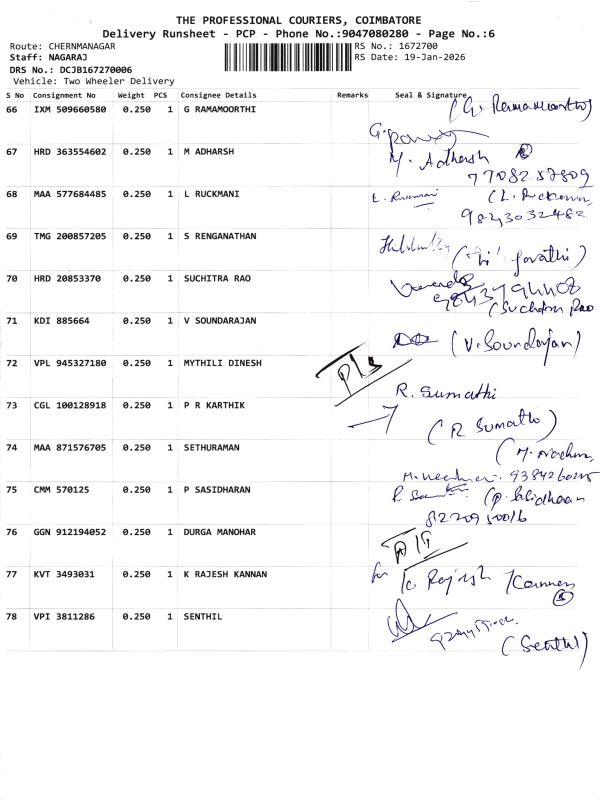 THE PROFESSIONAL COURIERS, COIMBATORE
Delivery Runsheet - PCP - Phone No.:9047080280 - Page No.:6
Route: CHERNMANAGAR RS No.: 1672700
Staff: NAGARAJ RS Date: 19-Jan-2026
DRS No.: DCJB167270006
Vehicle: Two Wheeler Delivery
S No Consignment No Weight PCS Consignee Details Remarks Seal & Signature
66 IXM 509660580 0.250 1 G RAMAMOORTHI
(G. Ramamoorthi)
67 HRD 363554602 0.250 1 M ADHARSH M. Adharsh
7708257809
68 MAA 577684485 0.250 1 L RUCKMANI
9843032482
69 TMG 200857205 0.250 1 S RENGANATHAN
70 HRD 20853370 0.250 1 SUCHITRA RAO
(Suchitra Rao
71 KDI 885664 0.250 1 V SOUNDARAJAN (V. Soundarajan)
72 VPL 945327180 0.250 1 MYTHILI DINESH
P/S
73 CGL 100128918 0.250 1 P R KARTHIK R. Sumathi
(R Sumathi)
74 MAA 871576705 0.250 1 SETHURAMAN
75 CMM 570125 0.250 1 P SASIDHARAN
76 GGN 912194052 0.250 1 DURGA MANOHAR
77 KVT 3493031 0.250 1 K RAJESH KANNAN for K Rajesh Kannan
78 VPI 3811286 0.250 1 SENTHIL
(Senthil)